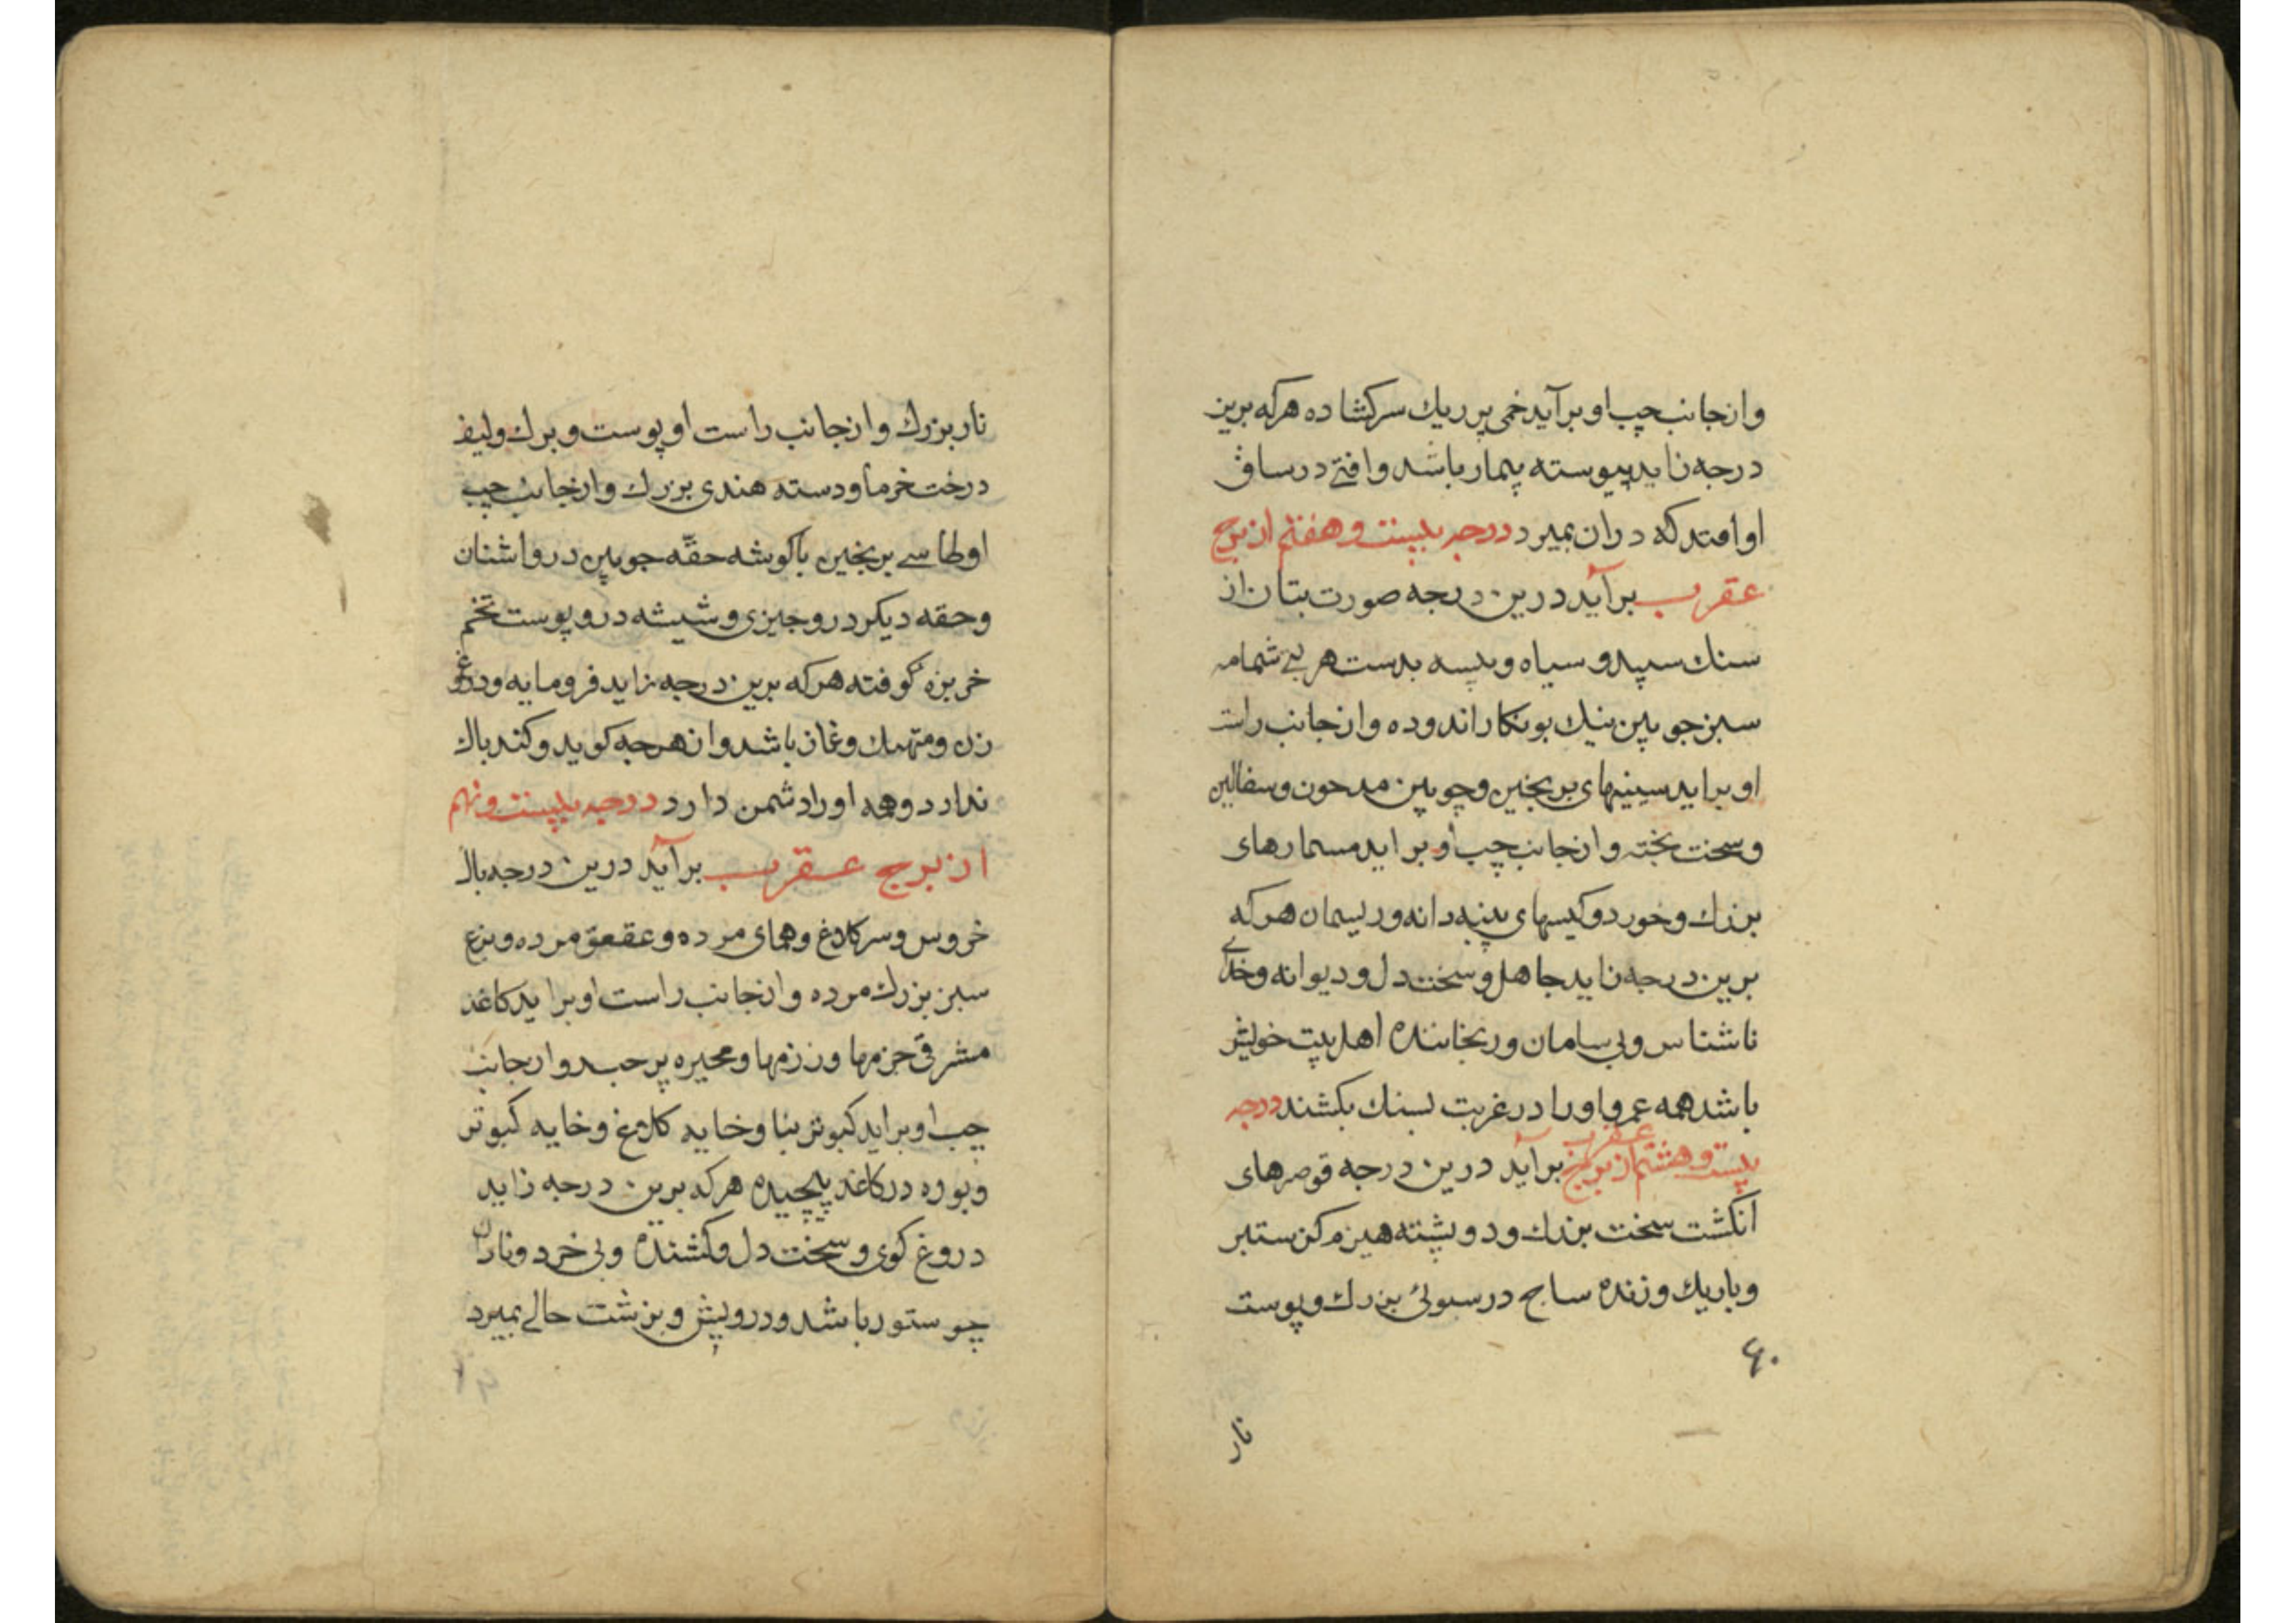 وازجانب چپ او برآید خمی پر ریك سر کشاده هر که برین
درجه زاید پیوسته بیمار باشد وافتی در ساق
او افتد که دران بمیرد درجه بیست و هفتم از برج
عقرب برآید درین درجه صورت بتان از
سنك سپید و سیاه و پیسه بدست هر یی شمامه
سبز جوبین نیك بوبنکار اندوده وازجانب راست
او براید سینیهای برنجین وچوبین مدحون وسفالین
وسخت پخته وازجانب چپ او براید مسمارهای
بزرك وخورد وکیسهای پنبه دانه وریسمان هر که
برین درجه زاید جاهل و سخت دل و دیوانه وخدای
ناشناس وبی سامان ورنجاننده اهل بیت خویش
باشد همه عمر واورا در غربت بسنك بکشند درجه
بیست و هشتم از برج عقرب برآید درین درجه قرصهای
انکشت سخت بزرك ودو پشته هیزم کز ستبر
وباریك وزنده ساج در سبوئی بزرك وپوست
۶۰
نار
نار بزرك وازجانب راست او پوست وبرك ولیف
درخت خرما ودسته هندی بزرك وازجانب چپ
او طاسے برنجین باکوشه حقه جوبین درو اشنان
وحقه دیکر درو جیزی وشیشه درو پوست تخم
خربزه کوفته هر که برین درجه زاید فرومایه ودروغ
زن ومتهتك وغماز باشد واز هرجه کوید وکند باك
ندارد وهمه اورا دشمن دارد درجه بیست و نهم
از برج عقرب برآید درین درجه بال
خروس وسر کلاغ وهمای مرده وعقعق مرده وبزغ
سبز بزرك مرده وازجانب راست او براید کاغذ
مشرقی حزمها ورزمها ومحبره پر حبر وازجانب
چپ او براید کبوتر بنا وخایه کلاغ وخایه کبوتر
وبوره در کاغذ پیچیده هر که برین درجه زاید
دروغ کوی وسخت دل وکشنده وبی خرد ونادان
چو ستور باشد ودرویش وبزشت حالے بمیرد